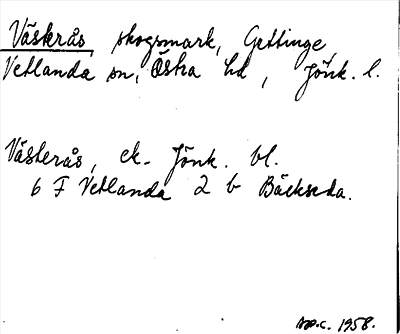 Västerås skogsmark, Gettinge,
Vetlanda sn, Östra hd, Jönk. l.
Västerås, ek. Jönk. bl.
6 F Vetlanda 2 b Bäckseda.
1958.